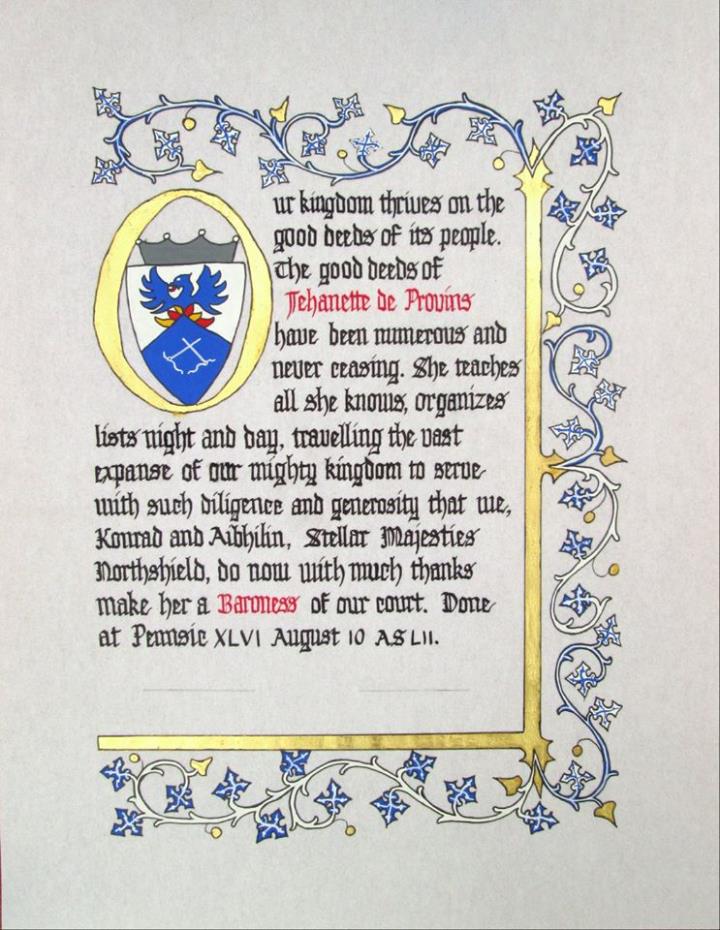 Our kingdom thrives on the
good deeds of its people.
The good deeds of
Jehanette de Provins
have been numerous and
never ceasing. She teaches
all she knows, organizes
lists night and day, travelling the vast
expanse of our mighty kingdom to serve
with such diligence and generosity that we,
Konrad and Aibhilin, Stellar Majesties
Northshield, do now with much thanks
make her a Baroness of our court. Done
at Pennsic XLVI August 10 AS LII.